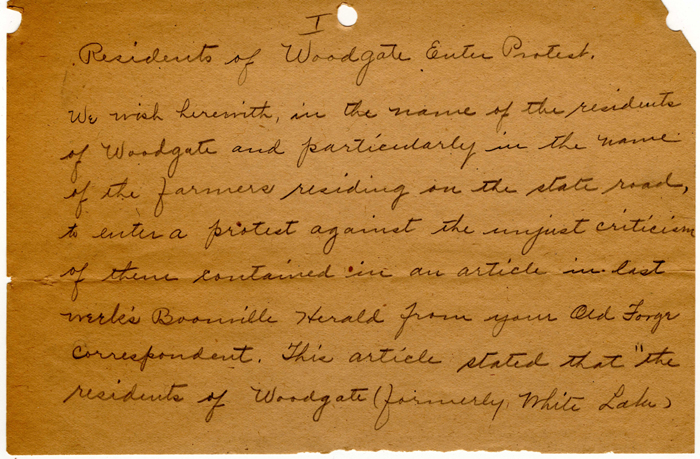 I
Residents of Woodgate Enter Protest.
We wish herewith, in the name of the residents
of Woodgate and particularly in the name
of the farmers residing on the state road,
to enter a protest against the unjust criticism
of them contained in an article in last
week's Boonville Herald from your Old Forge
correspondent. This article stated that "the
residents of Woodgate (formerly White Lake)